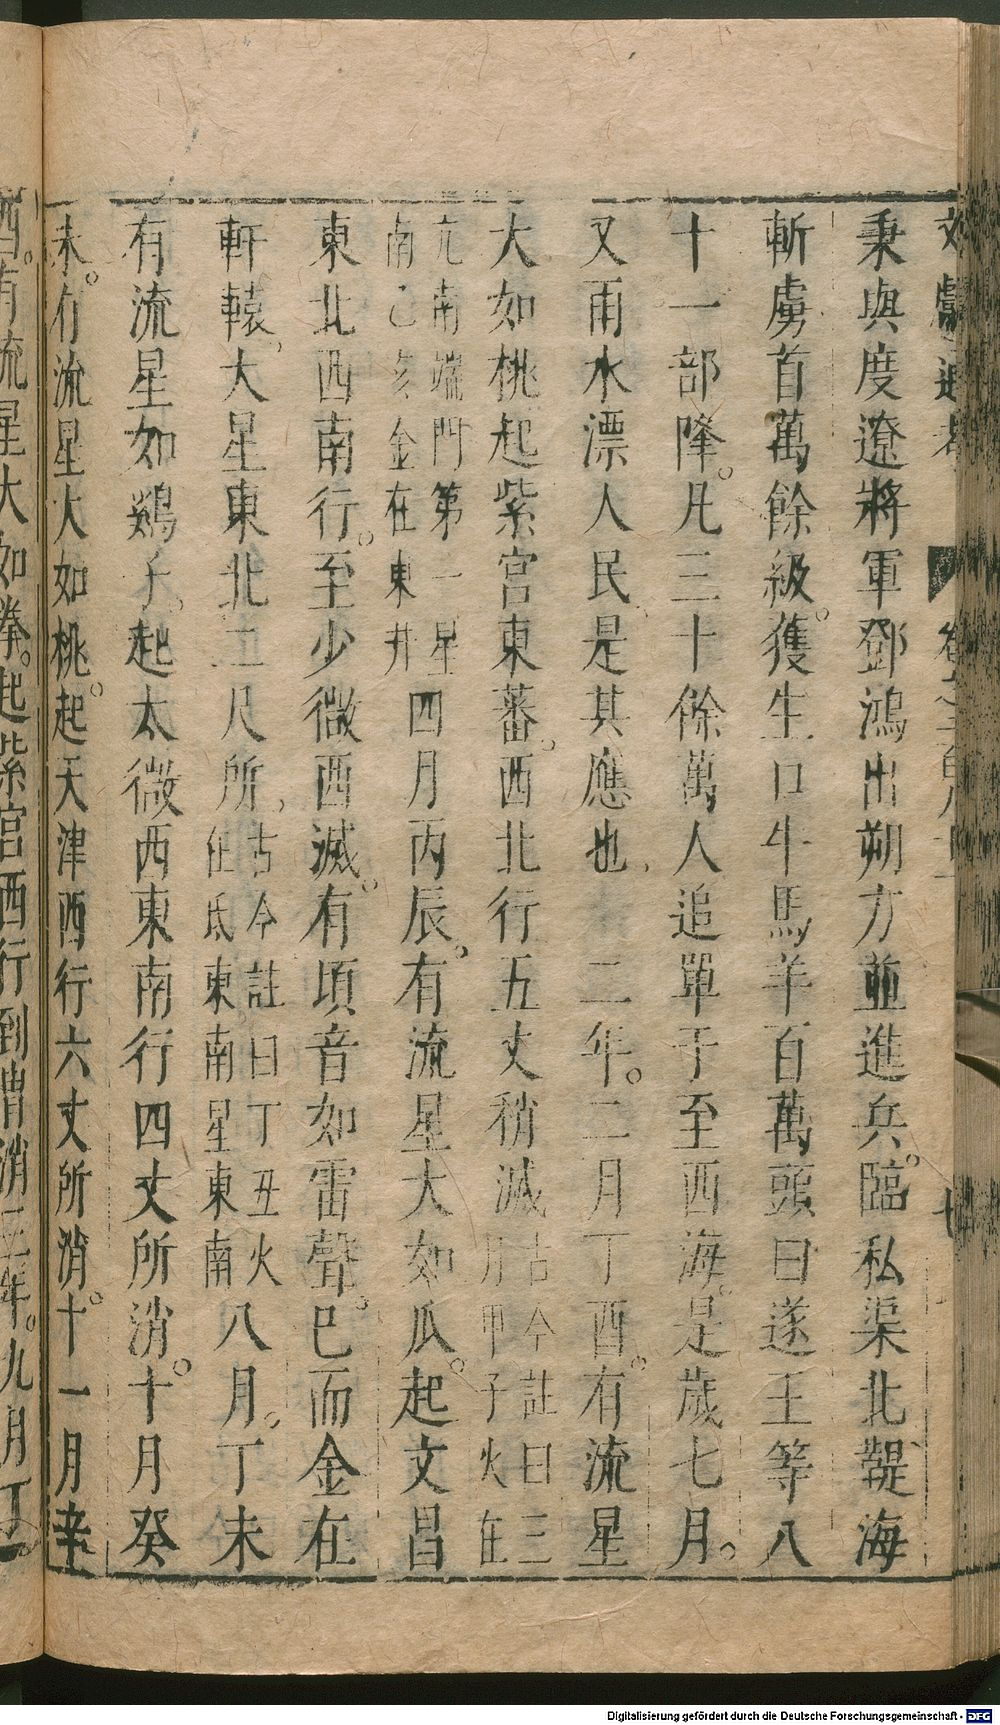 文獻通考 卷之二百八十一 七
秉與度遼將軍鄧鴻出朔方並進兵臨私渠北鞮海
斬虜首萬餘級獲生口牛馬羊百萬頭日逐王等八
十一部降凡三十餘萬人追單于至西海是歲七月
又雨水漂人民是其應也 二年二月丁酉有流星
大如桃起紫宮東蕃西北行五丈稍滅古今註曰三月甲子火在
亢南端門第一星南乙亥金在東井四月丙辰有流星大如瓜起文昌
東北西南行至少微西滅有頃音如雷聲已而金在
軒轅大星東北二尺所古今註曰丁丑火在氐東南星東南八月丁未
有流星如鷄子起太微西東南行四丈所消十月癸
未有流星大如桃起天津西行六丈所消十一月辛
酉有流星大如拳起紫宮西行到胃消三年九月丁
Digitalisierung gefördert durch die Deutsche Forschungsgemeinschaft - DFG